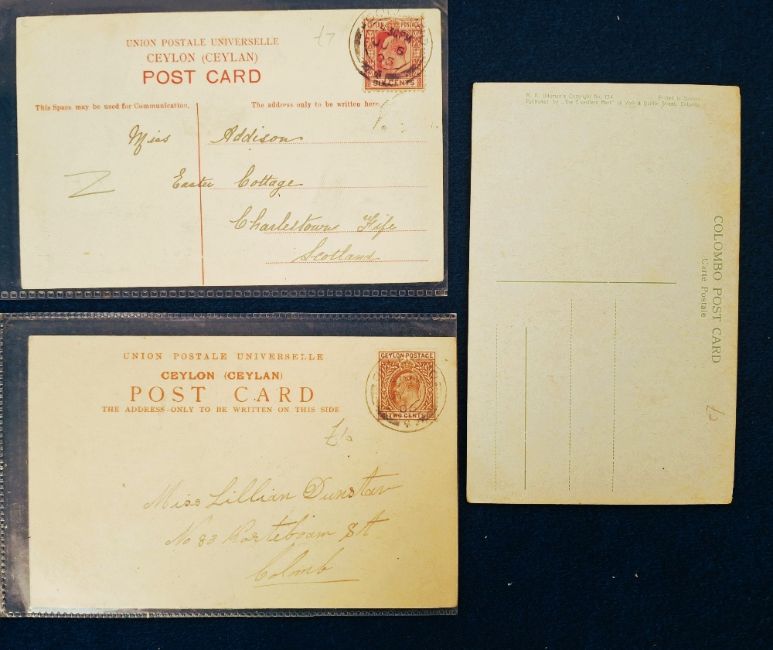 UNION POSTALE UNIVERSELLE
CEYLON (CEYLAN)
POST CARD
This Space may be used for Communication.
The address only to be written here.
SIX CENTS
Miss Addison
Easter Cottage
Charlestown Fife
Scotland
UNION POSTALE UNIVERSELLE
CEYLON (CEYLAN)
POST CARD
THE ADDRESS ONLY TO BE WRITTEN ON THIS SIDE
CEYLON POSTAGE
TWO CENTS
Miss Lillian
No 83 St
Colomb
COLOMBO POST CARD
Carte Postale